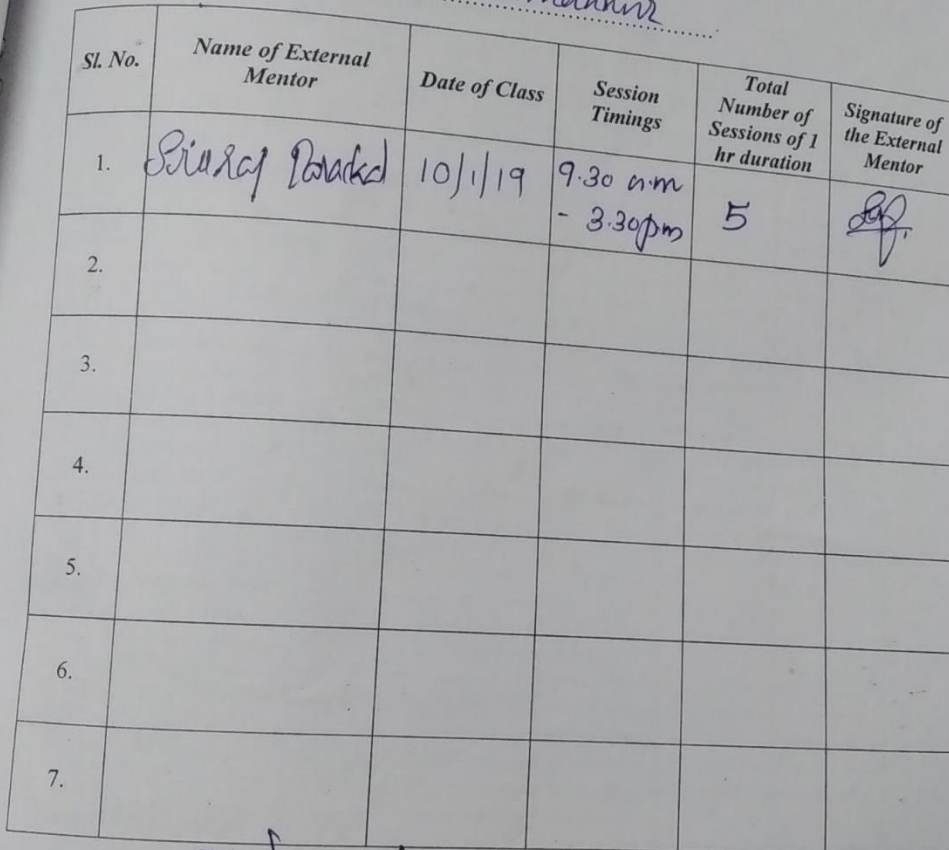 Sl. No.
Name of External
Mentor
Date of Class
Session
Timings
Total
Number of
Sessions of 1
hr duration
Signature of
the External
Mentor
1.
10/1/19
9.30 a.m
- 3.30pm
5
2.
3.
4.
5.
6.
7.